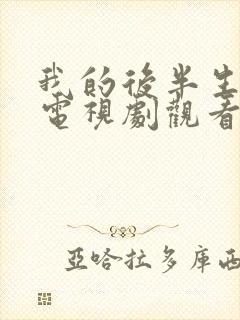 我的後半生
電視劇觀看
亞哈拉多庫西